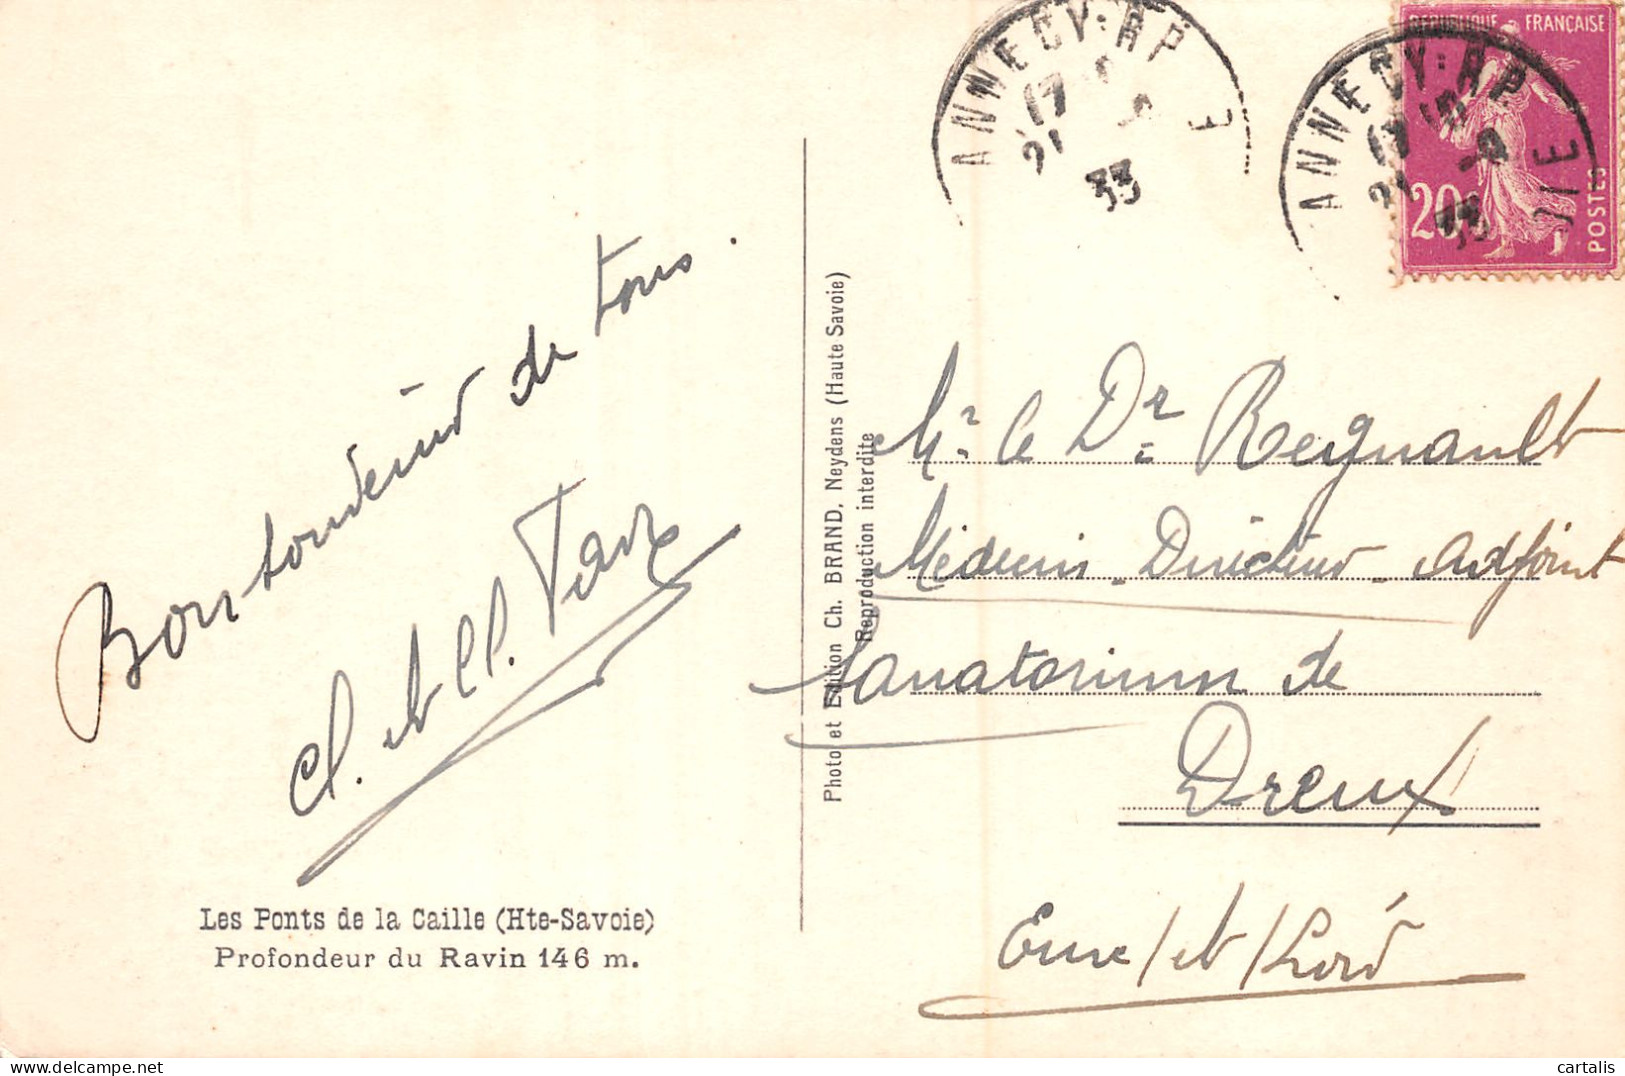 ANNECY. R.P
17
21
33
E
ANNECY. R.P
21
33
OIE
REPUBLIQUE FRANÇAISE
20c
POSTES
Bon souvenir de tous.
Cl. et
Photo et Edition Ch. BRAND, Neydens (Haute Savoie)
Reproduction interdite
Mr. le Dr. Regnault
Médecin-Directeur-Adjoint
Sanatorium de
Dreux
Eure/et/Loir
Les Ponts de la Caille (Hte-Savoie)
Profondeur du Ravin 146 m.
cartalis